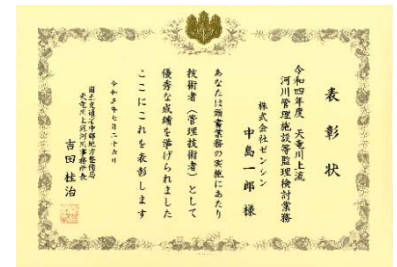 表彰状
令和四年度 天竜川上流
河川管理施設等監理検討業務
株式会社ゼンシン
中島一郎 様
あなたは頭書業務の実施にあたり
技術者(管理技術者)として
優秀な成績を挙げられました
ここにこれを表彰します
令和五年七月二十六日
国土交通省中部地方整備局
天竜川上流河川事務所長
吉田桂治